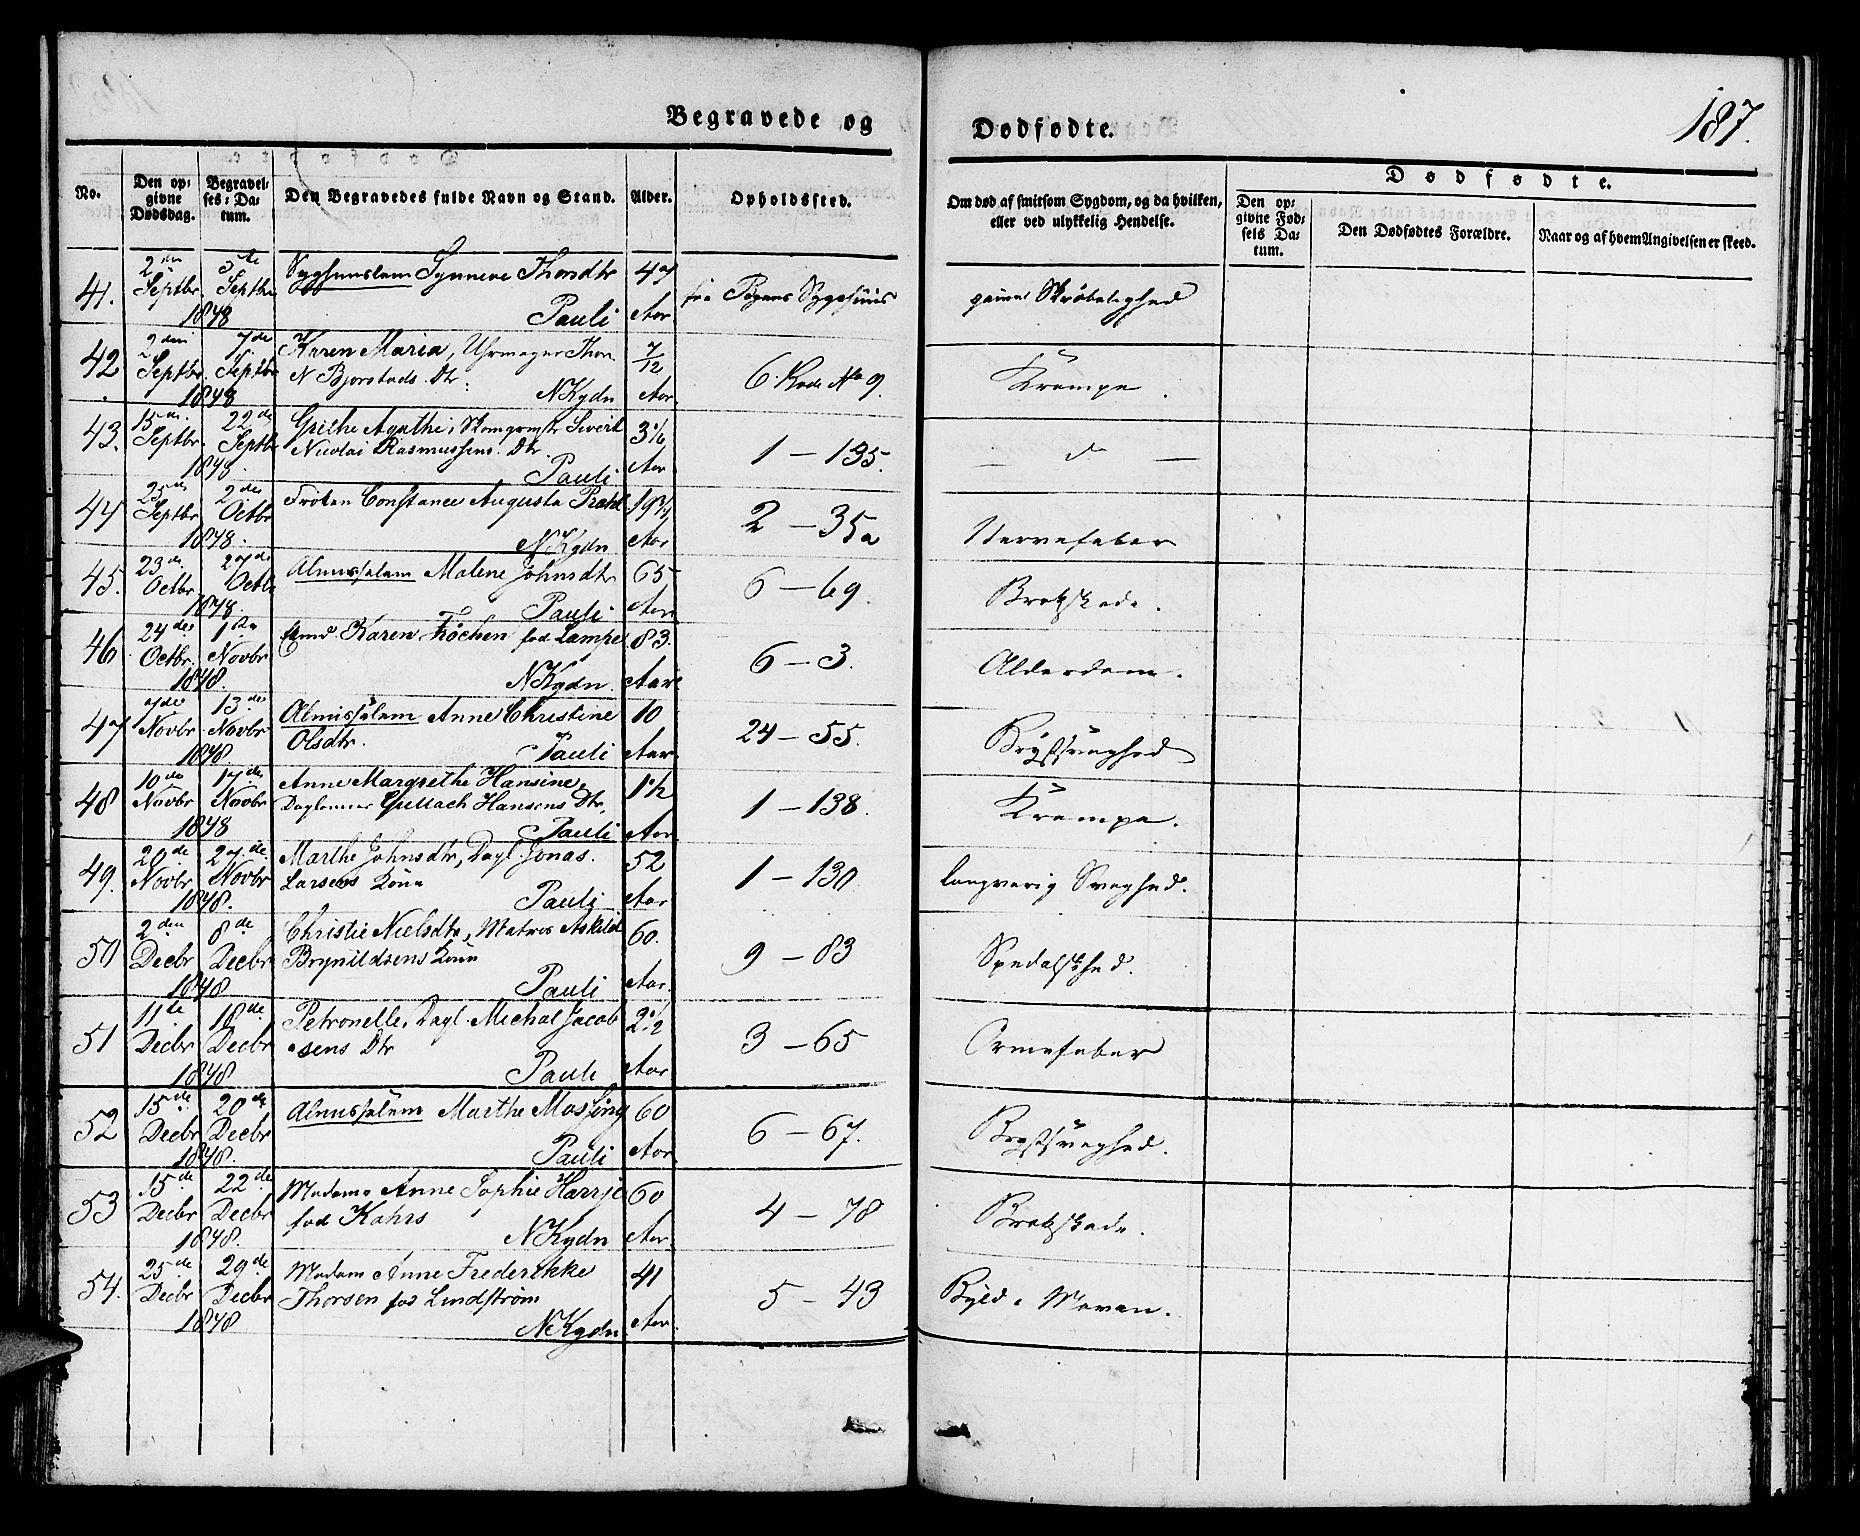 Begravede og Dødfødte. 187.
No. Den opgivne Dødsdag. Begravelses-Datum. Den Begravedes fulde Navn og Stand. Alder. Opholdssted. Om død af smitsom Sygdom, og da hvilken, eller ved ulykkelig Hendelse. Dødfødte.
Den opgivne Fødsels Datum. Den Dødfødtes Forældre. Naar og af hvem Angivelsen er skeed.
41. 2den Septbr 5te Septbr Synneve Thorsdtr 47 fra Byens Sygehuus Skrøbelighed
1848 Pauli Aar
42 2den Septbr 7de Septbr Karen Maria, Uhrmager Thor 7/12 6 Rode No 9. Krampe.
N Bjørstads Dtr
1848 NKydn Aar
43. 15de Septbr 22de Septbr Grethe Agathe, Sivert 1 – 135. — d —
Nicolai Rasmussens Dtr.
1848. Pauli Aar
44 25de Septbr 2den Octbr Frøken Constance Augusta 2 – 35a Nervefeber
1848. NKydn Aar
45. 23de Octbr 27de Octbr Almisselem Malene Johnsdtr 65 6 – 69. Brokskade.
1848. Pauli Aar
46 24de Octbr. 1ste Novbr Karen Køchen fød Lampe 83. 6 – 3. Alderdom.
1848. NKydn. Aar
47 7de Novbr 13de Novbr Almisselem Anne Christine 10 24 – 55. Brystsvaghed
Olsdtr.
1848. Pauli Aar
48 10de Novbr 17de Novbr Anne Margrethe Hansine, 1 1/2 1 – 138. Krampe.
Daglønner Gullach Hansens Dtr,
1848 Pauli Aar
49. 20de Novbr 27de Novbr Marthe Johnsdtr, Dagl. Jonas 52 1 – 130 langvarig Svaghed.
Larsens Kone
1848. Pauli Aar
50 2den Decbr 8de Decbr Christie Nielsdtr, Matros Askild 60. 9 – 83 Spedalskhed.
Brynildsens Kone
1848 Pauli Aar.
51 11te Decbr 18de Decbr Petronelle, Dagl. Michal Jacob 2 1/2 3 – 65 Ormefeber
sens Dtr
1848 Pauli Aar
52 15de Decbr 20de Decbr Almisselem Marthe Mossing 60 6 – 67. Brystsvaghed.
1848. Pauli Aar.
53 15de Decbr 22de Decbr Madame Anne Sophie Harrje 60 4 – 78 Brokskade.
fød Kahrs
1848. NKydn Aar.
54. 25de Decbr 29de Decbr Madam Anne Frederikke 41 5 – 43 Byld i Maven.
Thorsen fød Lindstrøm
1848 NKydn. Aar.